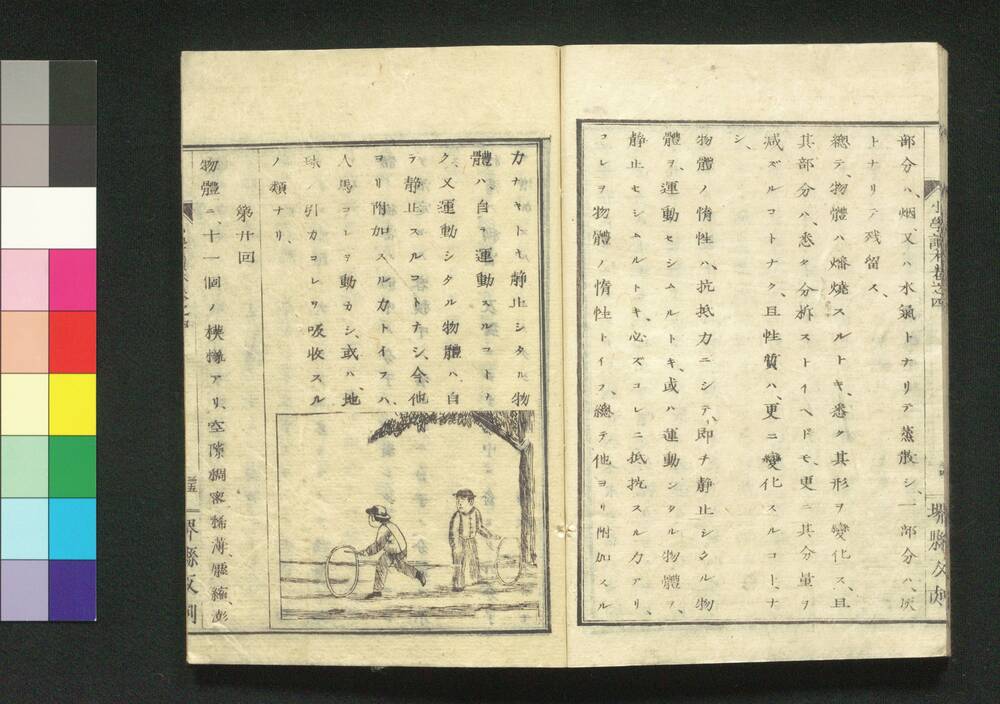 部分ハ、烟、又ハ水氣トナリテ蒸散シ、一部分ハ、灰
トナリテ残留ス、
總テ、物體ハ燔燒スルトキ、悉ク其形ヲ變化ス、且
其部分ハ、悉ク分拆ストイヘドモ、更ニ其分量ヲ
減ズルコトナク、且性質ハ、更ニ變化スルコトナ
シ、
物體ノ惰性ハ、抗抵力ニシテ、即チ静止シタル物
體ヲ、運動セシムルトキ、或ハ運動シタル物體ヲ、
静止セシムルトキ、必ズコレニ抵抗スル力アリ、
コレヲ物體ノ惰性トイフ、總テ他ヨリ附加スル
小學讀本卷之四
堺縣反刻
力ナキトキ静止シタル物
體ハ、自ラ運動スルコトナ
ク、又運動シタル物體ハ、自
ラ静止スルコトナシ、今他
ヨリ附加スル力トイフハ、
人馬コレヲ動カシ、或ハ、地
球ノ引力コレヲ吸收スル
ノ類ナリ、
第廿回
物體ニ、十一個ノ模㨾アリ、空隙、稠密、稀薄、壓縮、彭
堺縣反刻